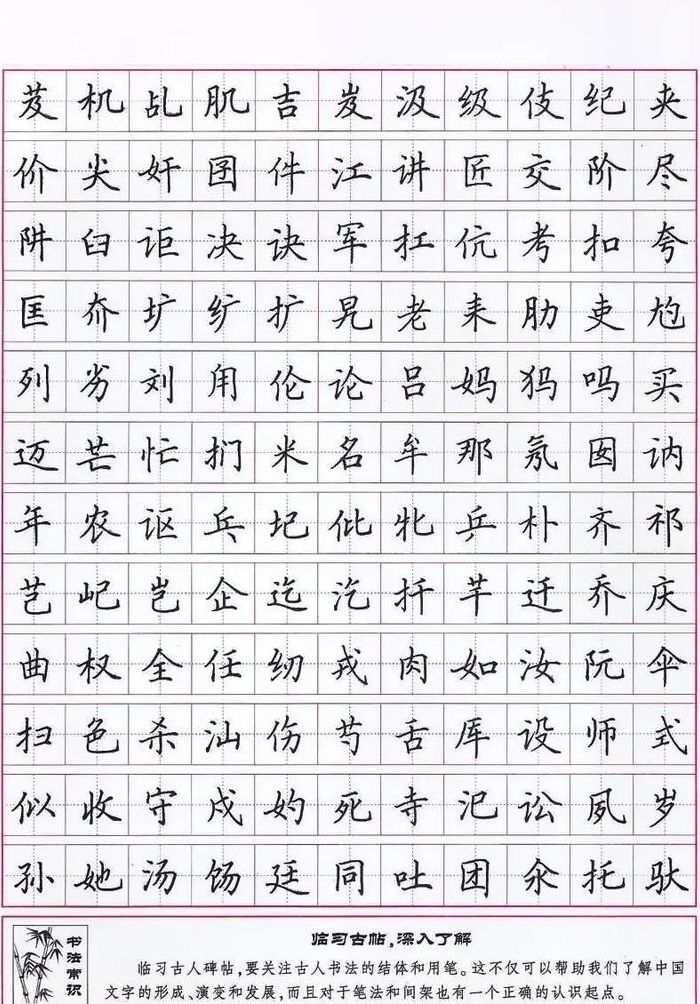 芨机乩肌吉岌汲级伎纪夹
价尖奸囝件江讲匠交阶尽
阱臼讵决诀军扛伉考扣夸
匡夼圹纩扩晃老耒肋吏尥
列劣刘甪伦论吕妈犸吗买
迈芒忙扪米名牟那氖囡讷
年农讴乓圮仳牝乒朴齐祁
芑屺岂企迄汔扦芊迁乔庆
曲权全任纫戎肉如汝阮伞
扫色杀汕伤芍舌厍设师式
似收守戍妁死寺汜讼夙岁
孙她汤饧廷同吐团氽托驮
书法常识
临习古帖,深入了解
临习古人碑帖,要关注古人书法的结体和用笔。这不仅可以帮助我们了解中国
文字的形成、演变和发展,而且对于笔法和间架也有一个正确的认识起点。